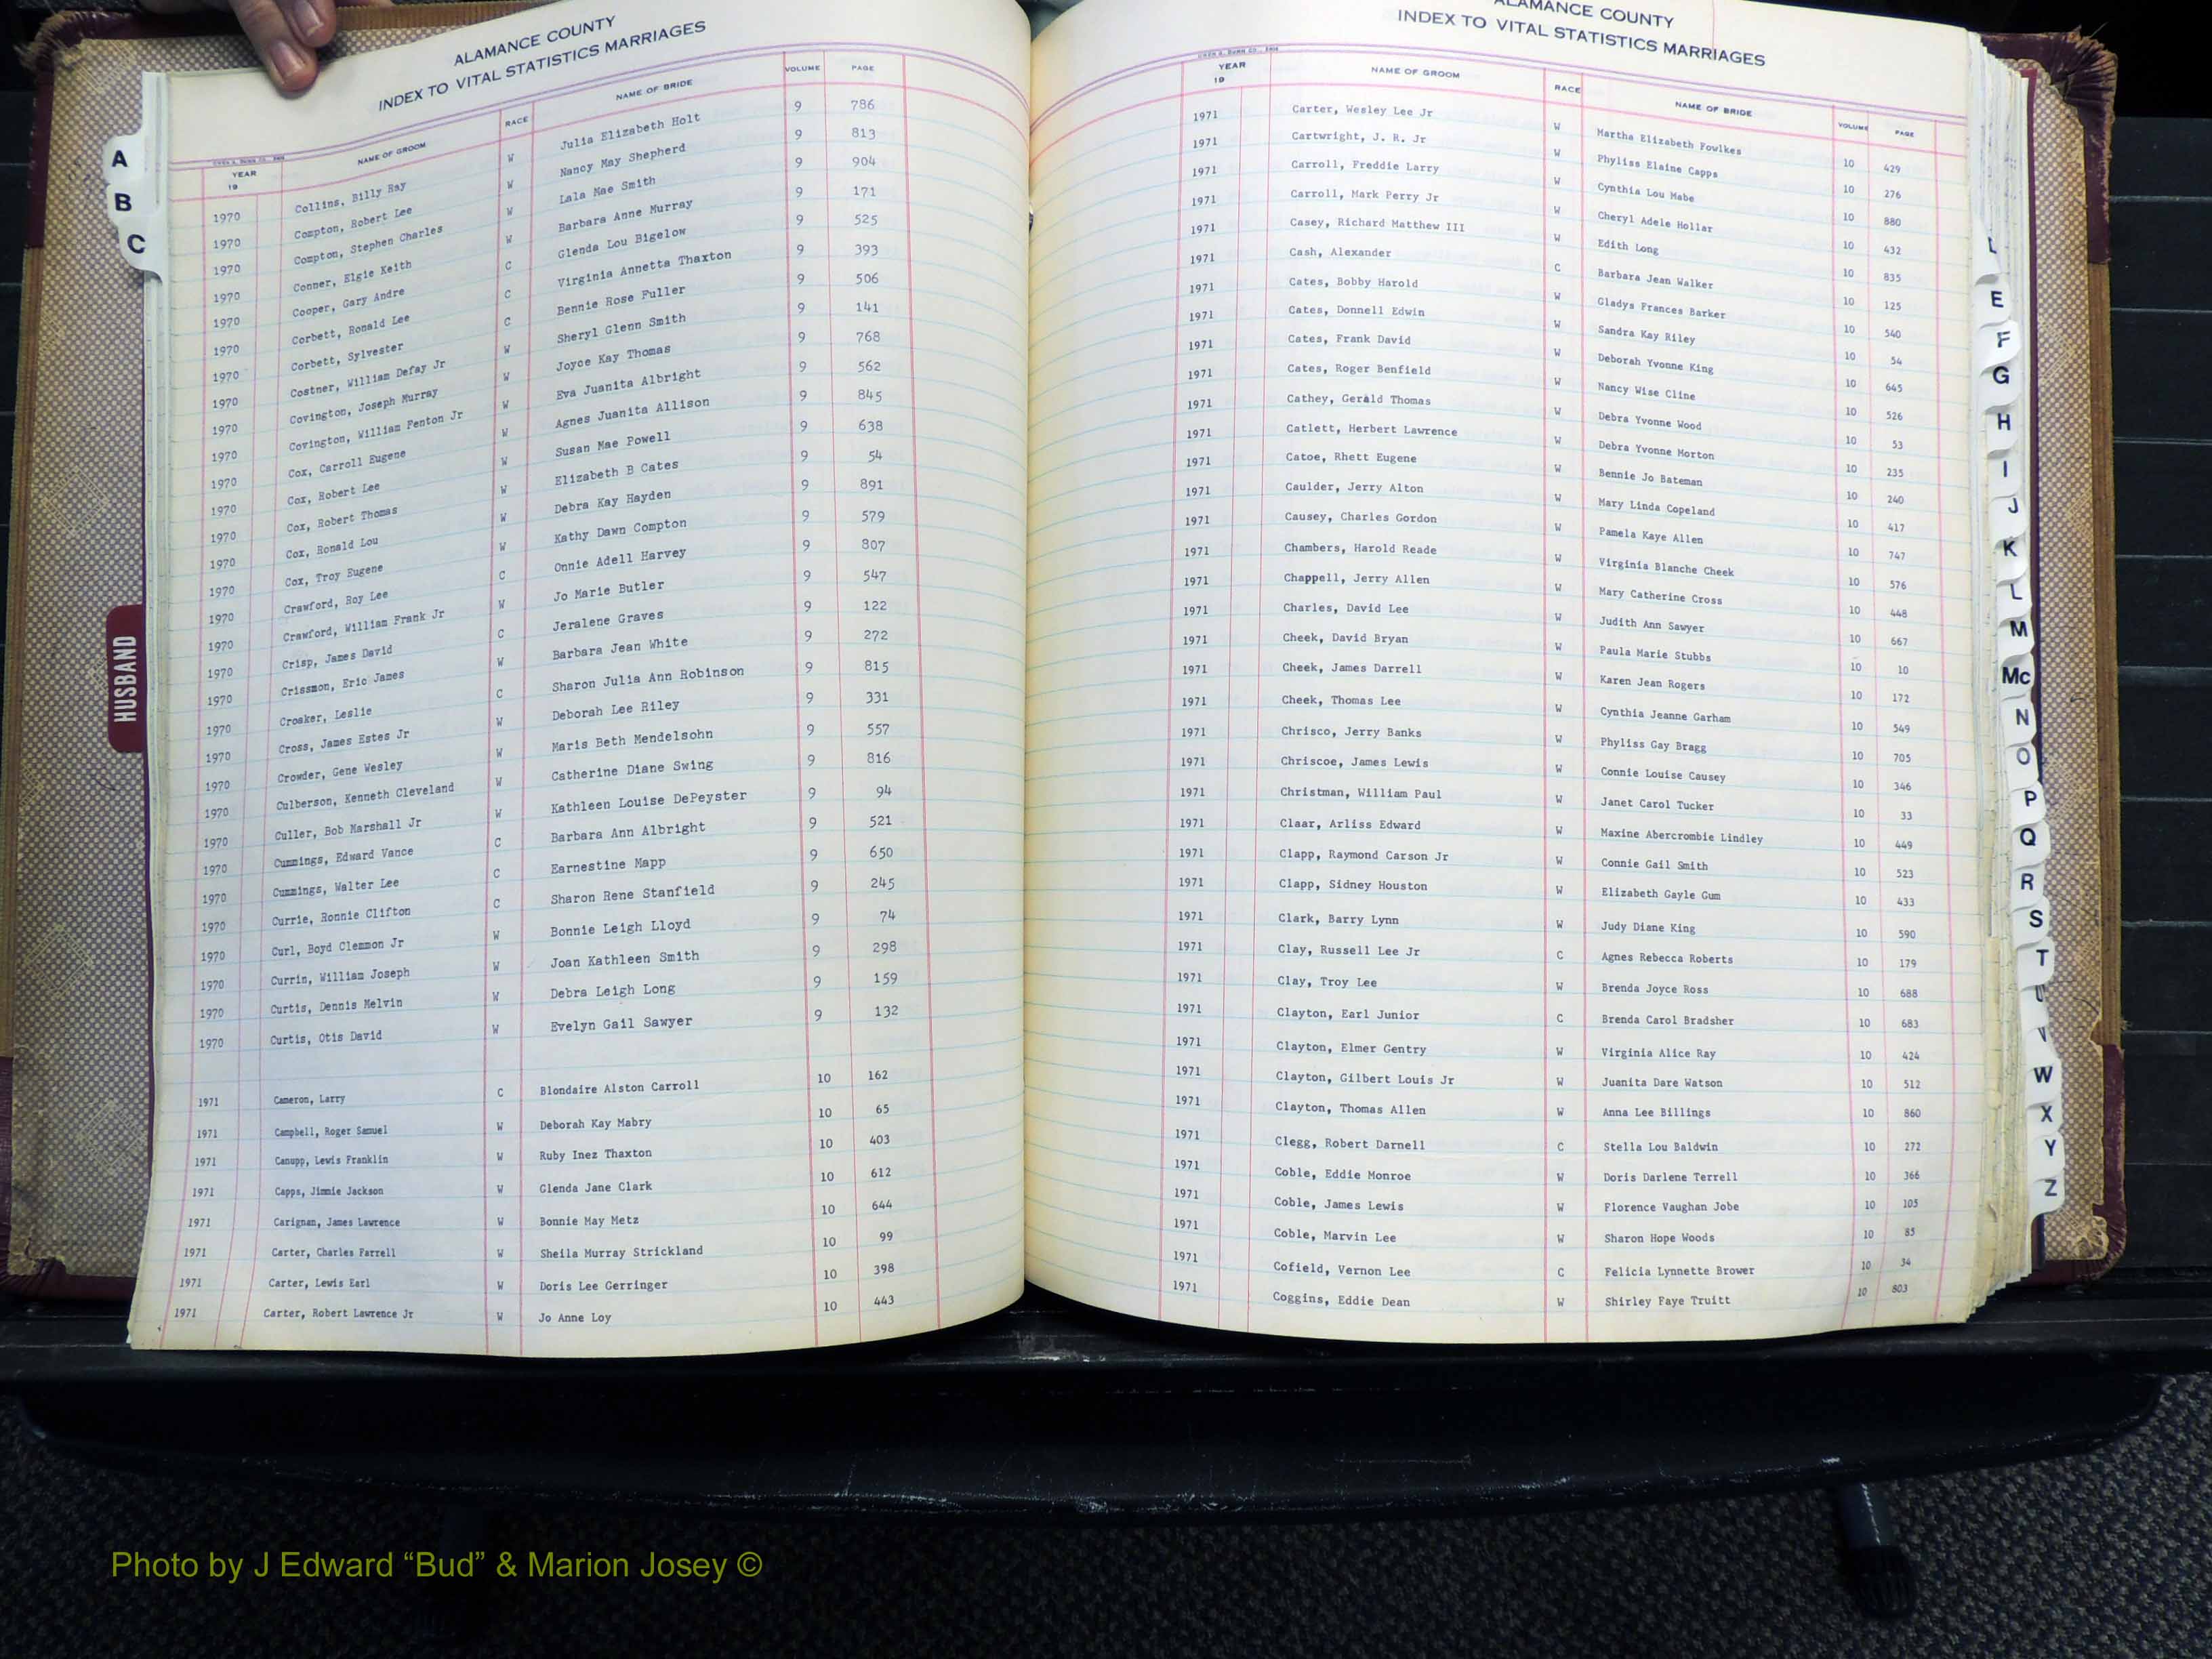 ALAMANCE COUNTY
INDEX TO VITAL STATISTICS MARRIAGES
YEAR 19 NAME OF GROOM RACE NAME OF BRIDE VOLUME PAGE
1970 Collins, Billy Ray W Julia Elizabeth Holt 9 786
1970 Compton, Robert Lee W Nancy May Shepherd 9 813
1970 Compton, Stephen Charles W Lala Mae Smith 9 904
1970 Conner, Elgie Keith W Barbara Anne Murray 9 171
1970 Cooper, Gary Andre C Glenda Lou Bigelow 9 525
1970 Corbett, Ronald Lee C Virginia Annetta Thaxton 9 393
1970 Corbett, Sylvester C Bennie Rose Fuller 9 506
1970 Costner, William Defay Jr W Sheryl Glenn Smith 9 141
1970 Covington, Joseph Murray W Joyce Kay Thomas 9 768
1970 Covington, William Fenton Jr W Eva Juanita Albright 9 562
1970 Cox, Carroll Eugene W Agnes Juanita Allison 9 845
1970 Cox, Robert Lee W Susan Mae Powell 9 638
1970 Cox, Robert Thomas W Elizabeth B Cates 9 54
1970 Cox, Ronald Lou W Debra Kay Hayden 9 891
1970 Cox, Troy Eugene W Kathy Dawn Compton 9 579
1970 Crawford, Roy Lee C Onnie Adell Harvey 9 807
1970 Crawford, William Frank Jr W Jo Marie Butler 9 547
1970 Crisp, James David C Jeralene Graves 9 122
1970 Crissmon, Eric James W Barbara Jean White 9 272
1970 Croaker, Leslie C Sharon Julia Ann Robinson 9 815
1970 Cross, James Estes Jr W Deborah Lee Riley 9 331
1970 Crowder, Gene Wesley W Maris Beth Mendelsohn 9 557
1970 Culberson, Kenneth Cleveland W Catherine Diane Swing 9 816
1970 Culler, Bob Marshall Jr W Kathleen Louise DePeyster 9 94
1970 Cummings, Edward Vance C Barbara Ann Albright 9 521
1970 Cummings, Walter Lee C Earnestine Mapp 9 650
1970 Currie, Ronnie Clifton C Sharon Rene Stanfield 9 245
1970 Curl, Boyd Clemmon Jr W Bonnie Leigh Lloyd 9 74
1970 Currin, William Joseph W Joan Kathleen Smith 9 298
1970 Curtis, Dennis Melvin W Debra Leigh Long 9 159
1970 Curtis, Otis David W Evelyn Gail Sawyer 9 132
1971 Cameron, Larry C Blondaire Alston Carroll 10 162
1971 Campbell, Roger Samuel W Deborah Kay Mabry 10 65
1971 Canupp, Lewis Franklin W Ruby Inez Thaxton 10 403
1971 Capps, Jimmie Jackson W Glenda Jane Clark 10 612
1971 Carignan, James Lawrence W Bonnie May Metz 10 644
1971 Carter, Charles Farrell W Sheila Murray Strickland 10 99
1971 Carter, Lewis Earl W Doris Lee Gerringer 10 398
1971 Carter, Robert Lawrence Jr W Jo Anne Loy 10 443
ALAMANCE COUNTY
INDEX TO VITAL STATISTICS MARRIAGES
YEAR 19 NAME OF GROOM RACE NAME OF BRIDE VOLUME PAGE
1971 Carter, Wesley Lee Jr W Martha Elizabeth Fowlkes 10 429
1971 Cartwright, J. R. Jr W Phyliss Elaine Capps 10 276
1971 Carroll, Freddie Larry W Cynthia Lou Mabe 10 880
1971 Carroll, Mark Perry Jr W Cheryl Adele Hollar 10 432
1971 Casey, Richard Matthew III W Edith Long 10 835
1971 Cash, Alexander C Barbara Jean Walker 10 125
1971 Cates, Bobby Harold W Gladys Frances Barker 10 540
1971 Cates, Donnell Edwin W Sandra Kay Riley 10 54
1971 Cates, Frank David W Deborah Yvonne King 10 645
1971 Cates, Roger Benfield W Nancy Wise Cline 10 526
1971 Cathey, Gerald Thomas W Debra Yvonne Wood 10 53
1971 Catlett, Herbert Lawrence W Debra Yvonne Morton 10 235
1971 Catoe, Rhett Eugene W Bennie Jo Bateman 10 240
1971 Caulder, Jerry Alton W Mary Linda Copeland 10 417
1971 Causey, Charles Gordon W Pamela Kaye Allen 10 747
1971 Chambers, Harold Reade W Virginia Blanche Cheek 10 576
1971 Chappell, Jerry Allen W Mary Catherine Cross 10 448
1971 Charles, David Lee W Judith Ann Sawyer 10 667
1971 Cheek, David Bryan W Paula Marie Stubbs 10 10
1971 Cheek, James Darrell W Karen Jean Rogers 10 172
1971 Cheek, Thomas Lee W Cynthia Jeanne Garham 10 549
1971 Chrisco, Jerry Banks W Phyliss Gay Bragg 10 705
1971 Chriscoe, James Lewis W Connie Louise Causey 10 346
1971 Christman, William Paul W Janet Carol Tucker 10 33
1971 Claar, Arliss Edward W Maxine Abercrombie Lindley 10 449
1971 Clapp, Raymond Carson Jr W Connie Gail Smith 10 523
1971 Clapp, Sidney Houston W Elizabeth Gayle Gum 10 433
1971 Clark, Barry Lynn W Judy Diane King 10 590
1971 Clay, Russell Lee Jr C Agnes Rebecca Roberts 10 179
1971 Clay, Troy Lee W Brenda Joyce Ross 10 688
1971 Clayton, Earl Junior C Brenda Carol Bradsher 10 683
1971 Clayton, Elmer Gentry W Virginia Alice Ray 10 424
1971 Clayton, Gilbert Louis Jr W Juanita Dare Watson 10 512
1971 Clayton, Thomas Allen W Anna Lee Billings 10 860
1971 Clegg, Robert Darnell C Stella Lou Baldwin 10 272
1971 Coble, Eddie Monroe W Doris Darlene Terrell 10 366
1971 Coble, James Lewis W Florence Vaughan Jobe 10 105
1971 Coble, Marvin Lee W Sharon Hope Woods 10 85
1971 Cofield, Vernon Lee C Felicia Lynnette Brower 10 34
1971 Coggins, Eddie Dean W Shirley Faye Truitt 10 803
A
B
C
HUSBAND
E
F
G
H
I
J
K
L
M
Mc
N
O
P
Q
R
S
T
U
V
W
X
Y
Z
Photo by J Edward “Bud” & Marion Josey ©